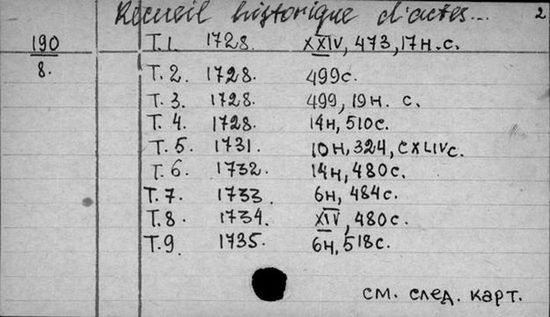 Recueil historique d'actes... 2
190 Т.1. 1728. XXIV, 473, 17н. с.
8. Т.2. 1728. 499с.
Т.3. 1728. 499, 19н. с.
Т.4. 1728. 14н, 510с.
Т.5. 1731. 10н, 324, CXLIVс.
Т.6. 1732. 14н, 480с.
Т.7. 1733. 6н, 484с.
Т.8. 1734. XIV, 480с.
Т.9. 1735. 6н, 518с.
см. след. карт.